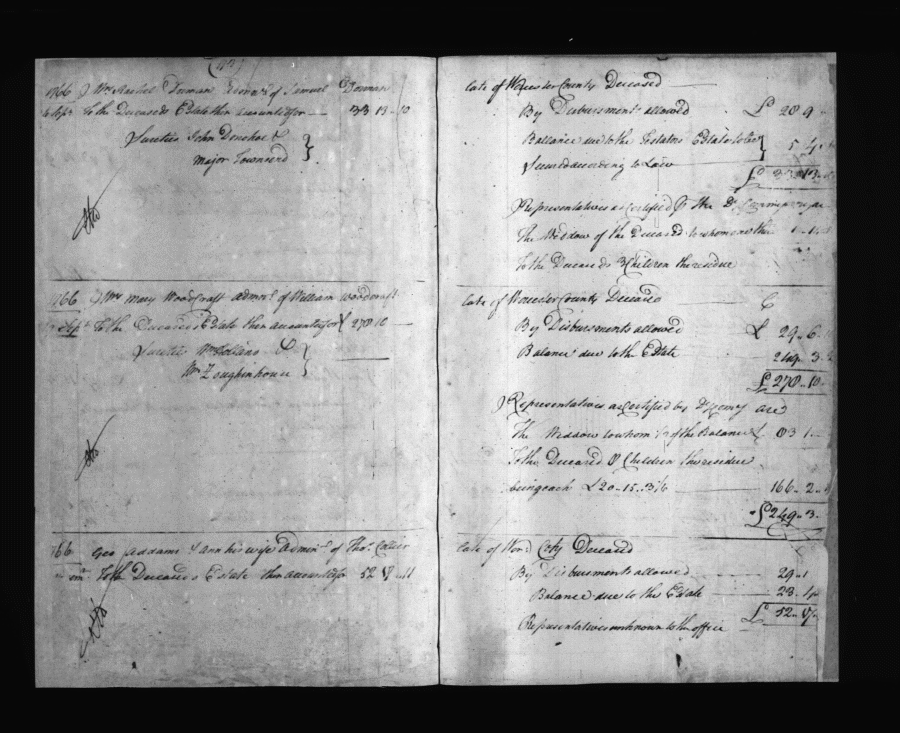 1766 Mrs Rachel Dorman Admx. of Samuel Dorman
Sepr. To the Deceaseds Estate then accounted for 33 13 10
Sureties John Donohoe &
Major Townsend
1766 Mrs Mary Woodcraft Admx. of William Woodcraft
Sepr. To the Deceaseds Estate then accounted for £ 278 10
Sureties Wm. Holland &
Wm.
Geo Addams & Ann his wife Admin. of Thos. Collier
To the Deceaseds Estate then accounted for 52 17 11
late of Worcester County Deceased
By Disbursments allowed £ 28 9
Ballance due to the Estators Estate to be
Secured according to Law 5 4
£ 33 13
Representatives as Certified the Dy. Commissary are
The Widdow of the Deceased to whom
To the Deceaseds 3 Children the residue
late of Worcester County Deceased
By Disbursments allowed £ 29 6
Balance due to the Estate 249 3
£ 278 10
Representatives as Certified by D Henry are
The Widdow to whom 1/3 of the Balance £ 83 1
To the Deceased 8 Children the residue
being each £ 20 15 3 1/2 166 2
£ 249 3
late of Wor. Coty Deceased
By Disbursments allowed 29 1
Balance due to the Estate 23 1
£ 52 17
Representatives unknown to the office